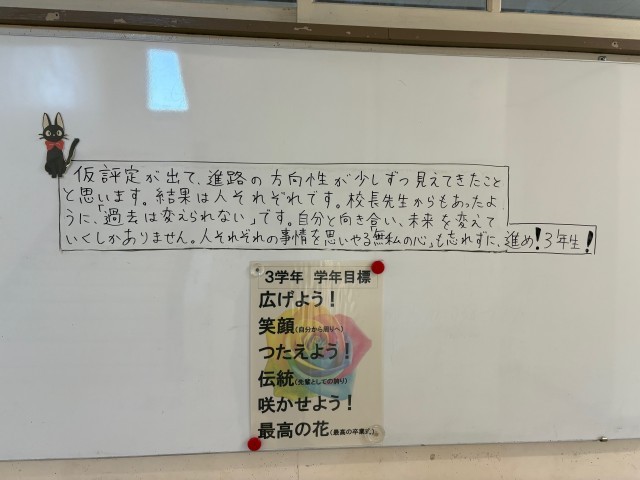 仮評定が出て、進路の方向性が少しずつ見えてきたこと
と思います。結果は人それぞれです。校長先生からもあったよ
うに、「過去は変えられない」です。自分と向き合い、未来を変えて
いくしかありません。人それぞれの事情を思いやる「無私の心」も忘れずに、進め!3年生!
3学年 学年目標
広げよう!
笑顔(自分から周りへ)
つたえよう!
伝統(先輩としての誇り)
咲かせよう!
最高の花(最高の卒業式)